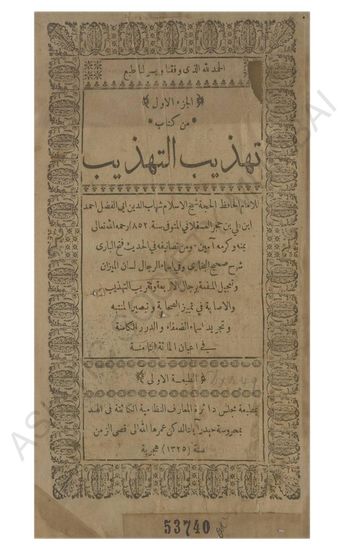 الحمد لله الذى وفقنا ويسر لنا طبع
الجزء الاول
من كتاب
تهذيب التهذيب
للامام الحافظ الحجة شيخ الاسلام شهاب الدين ابى الفضل احمد
ابن على بن حجر العسقلانى المتوفى سنة ٨٥٢ رحمه الله تعالى
بمنه وكرمه آمين ومن تصانيفه فى الحديث فتح البارى
شرح صحيح البخارى وفى اسماء الرجال لسان الميزان
وتعجيل المنفعة برجال الاربعة وتقريب التهذيب
والاصابة فى تمييز الصحابة وتبصير المنتبه
وتجريد اسماء الضعفاء والدرر الكامنة
فى اعيان المائة الثامنة
الطبعة الاولى
بمطبعة مجلس دائرة المعارف النظامية الكائنة فى الهند
بمحروسة حيدرآباد الدكن عمرها الله الى اقصى الزمن
سنة (١٣٢٥) هجرية
53740